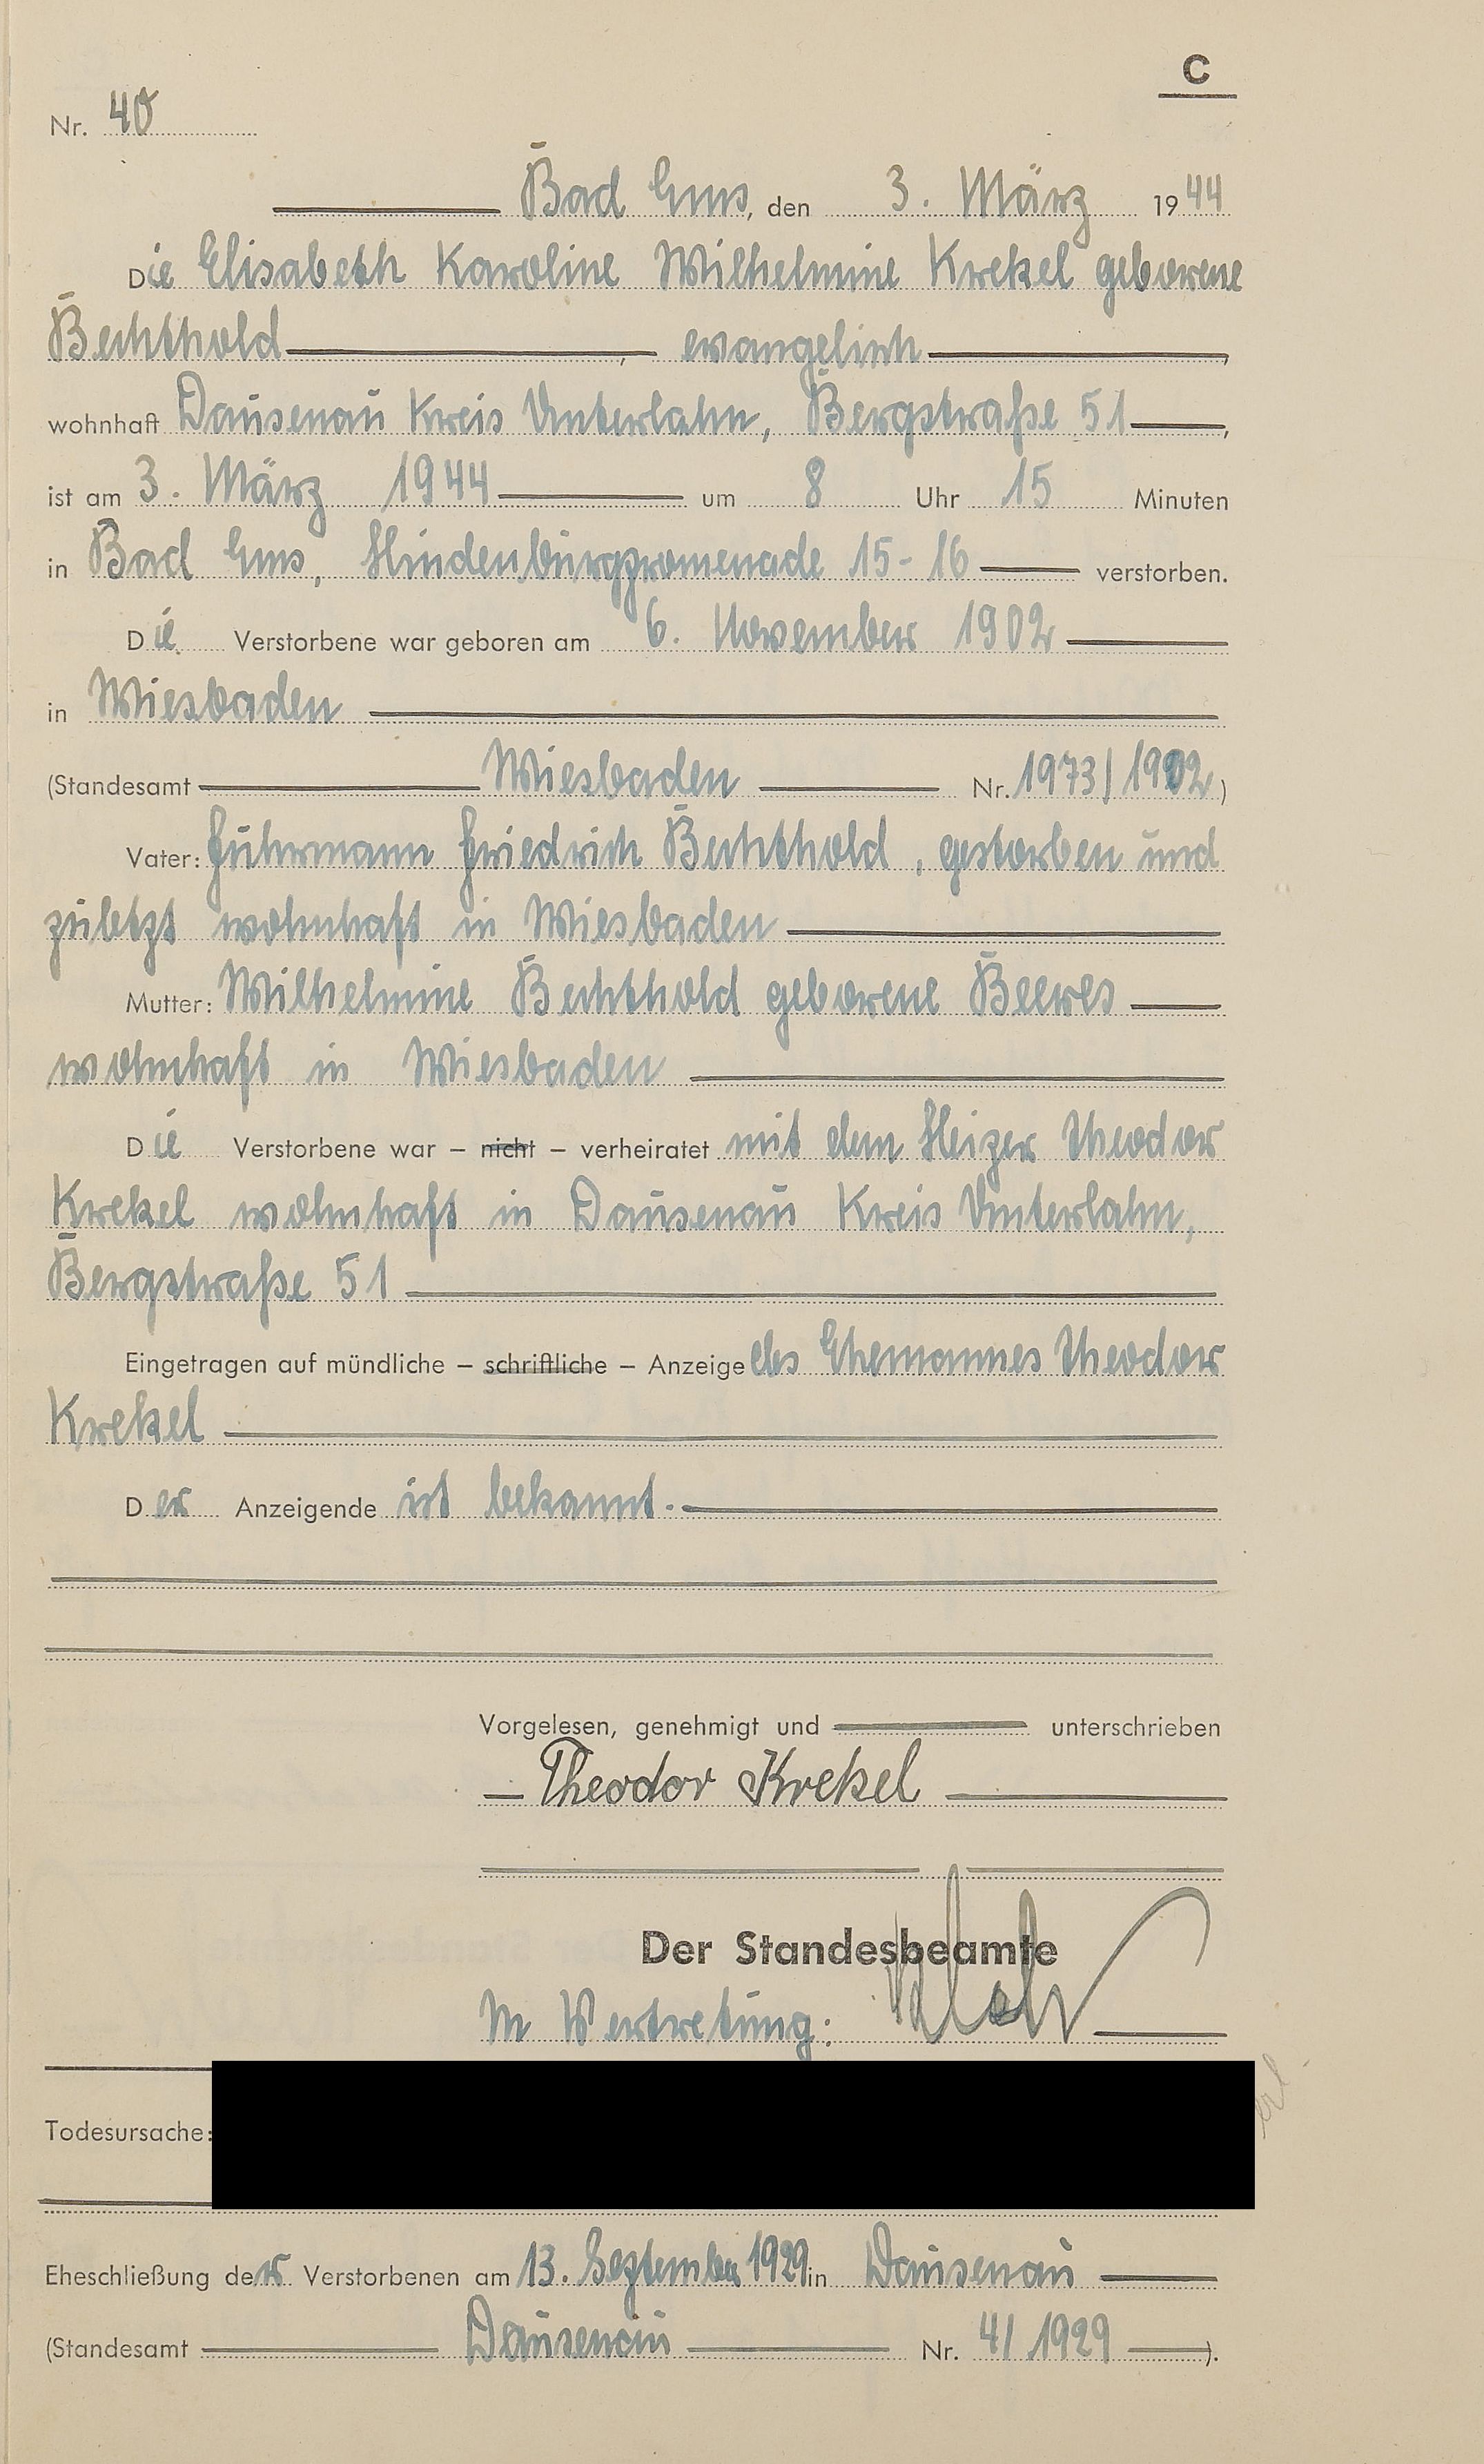 C
Nr. 40
Bad Ems, den 3. März 1944
Die Elisabeth Karoline Wilhelmine Krekel geborene
Bechthold, evangelisch,
wohnhaft Dausenau Kreis Unterlahn, Bergstraße 51,
ist am 3. März 1944 um 8 Uhr 15 Minuten
in Bad Ems, Hindenburgpromenade 15-16 verstorben.
Die Verstorbene war geboren am 6. November 1902
in Wiesbaden
(Standesamt Wiesbaden Nr. 1973/1902)
Vater: Fuhrmann Friedrich Bechthold, gestorben und
zuletzt wohnhaft in Wiesbaden
Mutter: Wilhelmine Bechthold geborene Beeres
wohnhaft in Wiesbaden
Die Verstorbene war – nicht – verheiratet mit dem Heizer Theodor
Krekel wohnhaft in Dausenau Kreis Unterlahn,
Bergstraße 51
Eingetragen auf mündliche – schriftliche – Anzeige des Ehemannes Theodor
Krekel
Der Anzeigende ist bekannt.
Vorgelesen, genehmigt und unterschrieben
Theodor Krekel
Der Standesbeamte
In Vertretung:
Todesursache:
erl.
Eheschließung der Verstorbenen am 13. September 1929 in Dausenau
(Standesamt Dausenau Nr. 4/1929).